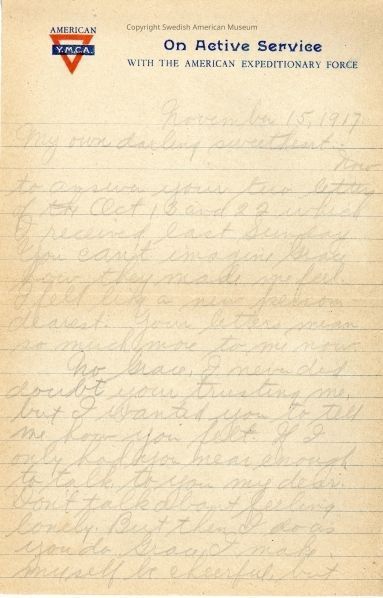 Copyright Swedish American Museum
AMERICAN
Y.M.C.A.
On Active Service
WITH THE AMERICAN EXPEDITIONARY FORCE
November 15, 1917
My own darling sweetheart:
Now
to answer your two letters
of Oct 13 and 22 which
I received last Sunday
You can't imagine Grace
how they made me feel.
I felt like a new person
dearest. Your letters mean
so much more to me now.
No Grace, I never did
doubt your trusting me,
but I wanted you to tell
me how you felt. If I
only had you near enough
to talk to you my dear.
Don't talk about feeling
lonely. But then I do as
you do Grace, I make
myself be cheerful, but